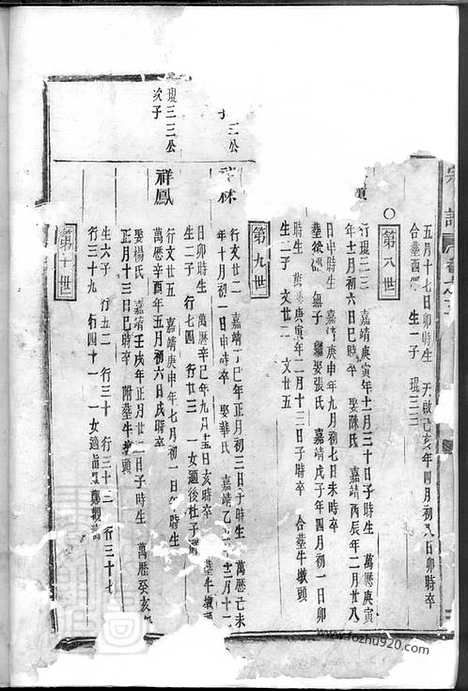 宗譜
五月十七日卯時生 天啟己亥年四月初八日卯時卒
合墓 生一子 琨三三
第八世
行琨三三 嘉靖庚寅年十一月三十日子時生 萬曆庚寅
年十一月初六日巳時卒 娶陳氏 嘉靖丙辰年二月廿八
日申時生 嘉靖庚申年九月初七日未時卒
無子 繼娶張氏 嘉靖戊子年四月初一日卯
時生 萬 庚寅年二月十三日子時卒 合墓牛墩頭
生二子 文廿二 文廿五
第九世
三公
行文廿二 嘉靖 巳年正月初三日子時生 萬曆己未
年十月初一日申時卒 娶華氏 嘉靖乙 年十二月十二
日卯時生 萬曆辛巳年九月 五日亥時卒 墓牛墩頭
生二子 行七四 行廿三 一女適後杜子
琨三三公
次子
祥鳳
行文廿五 嘉靖庚申年七月初一日 時生 萬曆癸亥
萬曆辛酉年五月初六日戌時卒
娶楊氏 嘉靖壬戌年正月廿 日子時生
正月十三日巳時卒 附墓牛墩頭
生六子 行五二 行三十 行三十二 行三十七
行三十九 行四十一 一女適
第十世
www.fozhu920.com